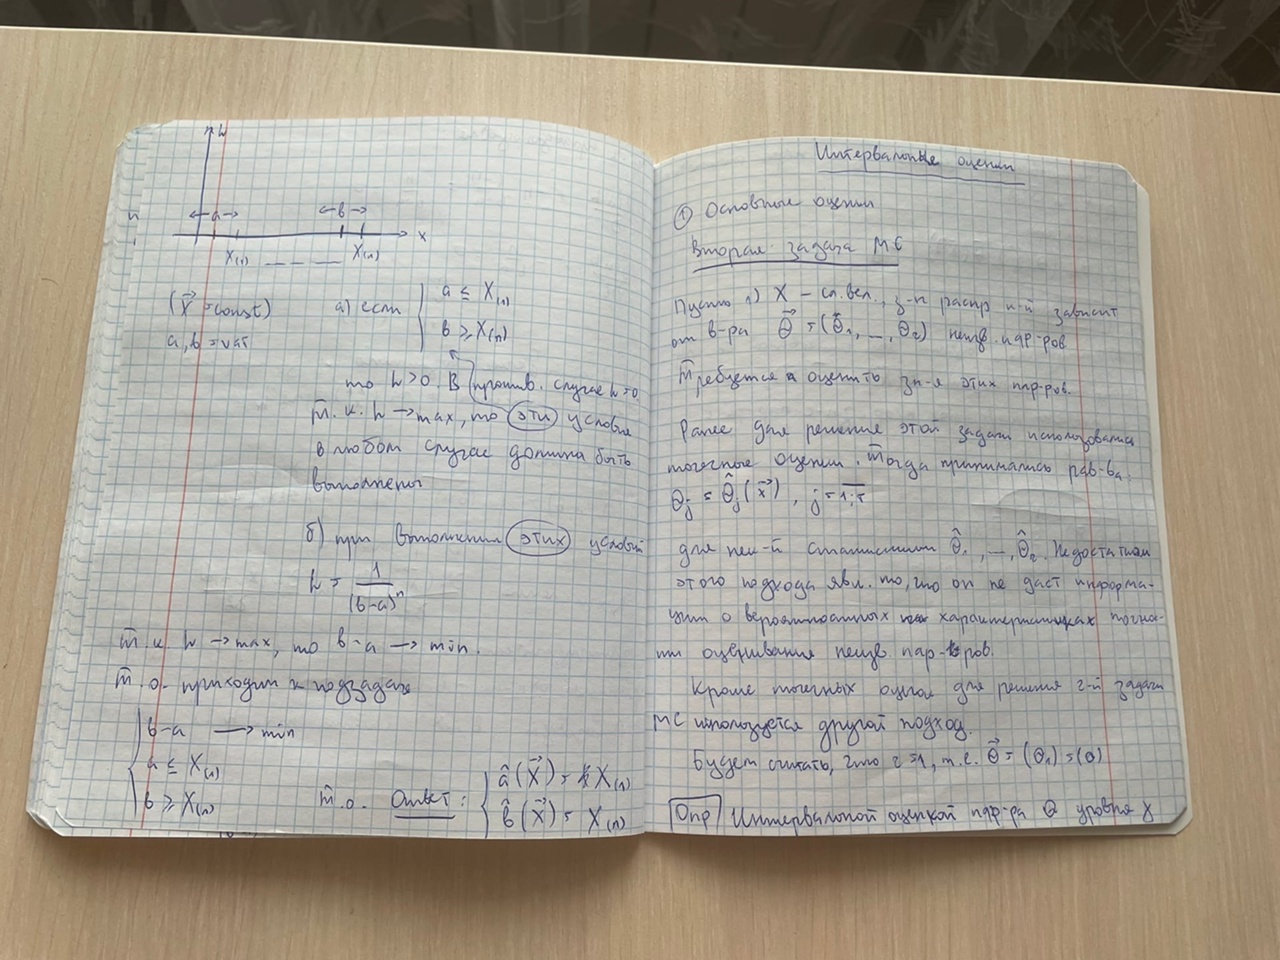 h
← a →
← b →
x
X₍₁₎ _ _ _ _ X₍ₙ₎
(X⃗ = const)
a, b = var
а) если { a ≤ X₍₁₎
b ≥ X₍ₙ₎
то h > 0. В против. случае h = 0
Т.к. h → max, то эти условия
в любом случае должны быть
выполнены
б) при выполнении этих условий
h = 1/(b-a)ⁿ
Т.к. h → max, то b-a → min.
Т.о. приходим к подзадаче
{ b-a → min
a ≤ X₍₁₎
b ≥ X₍ₙ₎
Т.о. Ответ: { â(X⃗) = X₍₁₎
b̂(X⃗) = X₍ₙ₎
Интервальные оценки
① Основные оценки
Вторая задача МС
Пусть 1) X – сл. вел., з-н распр к-й зависит
от в-ра Θ⃗ = (Θ₁, ..., Θ₂) неизв. пар-ров
Требуется оценить зн-я этих пар-ров.
Ранее для решения этой задачи использовались
точечные оценки. Тогда принимались рав-ва:
Θⱼ = Θ̂ⱼ(x⃗), j = 1;r
для нек-й статистики Θ̂₁, ..., Θ̂₂. Недостатком
этого подхода явл. то, что он не даст информа-
ции о вероятностных характеристиках точно-
ти оценивания неизв. пар-ров.
Кроме точечных оценок для решения 2-й задачи
МС используется другой подход.
Будет считать, что r = 1, т.е. Θ⃗ = (Θ₁) = (Θ)
Опр Интервальной оценкой пар-ра Θ уровня γ